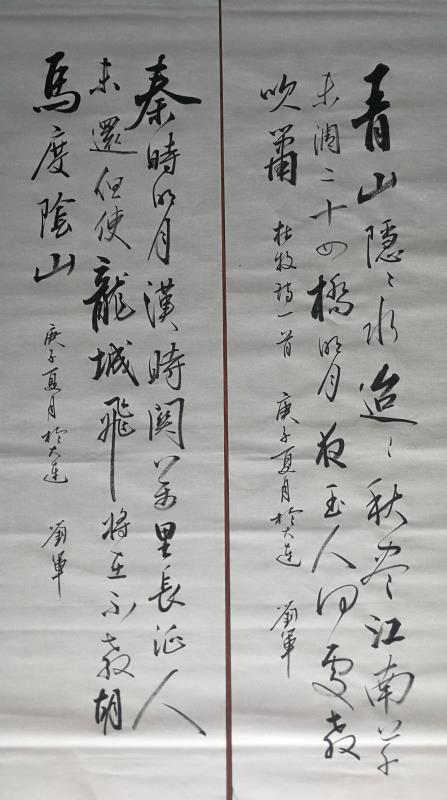 青山隱〻水迢〻秋尽江南草
未凋二十四橋明月夜玉人何處教
吹簫 杜牧詩一首 庚子夏月於大連 劉軍
秦時明月漢時關萬里長征人
未還但使龍城飛將在不教胡
馬度陰山 庚子夏月於大連 劉軍